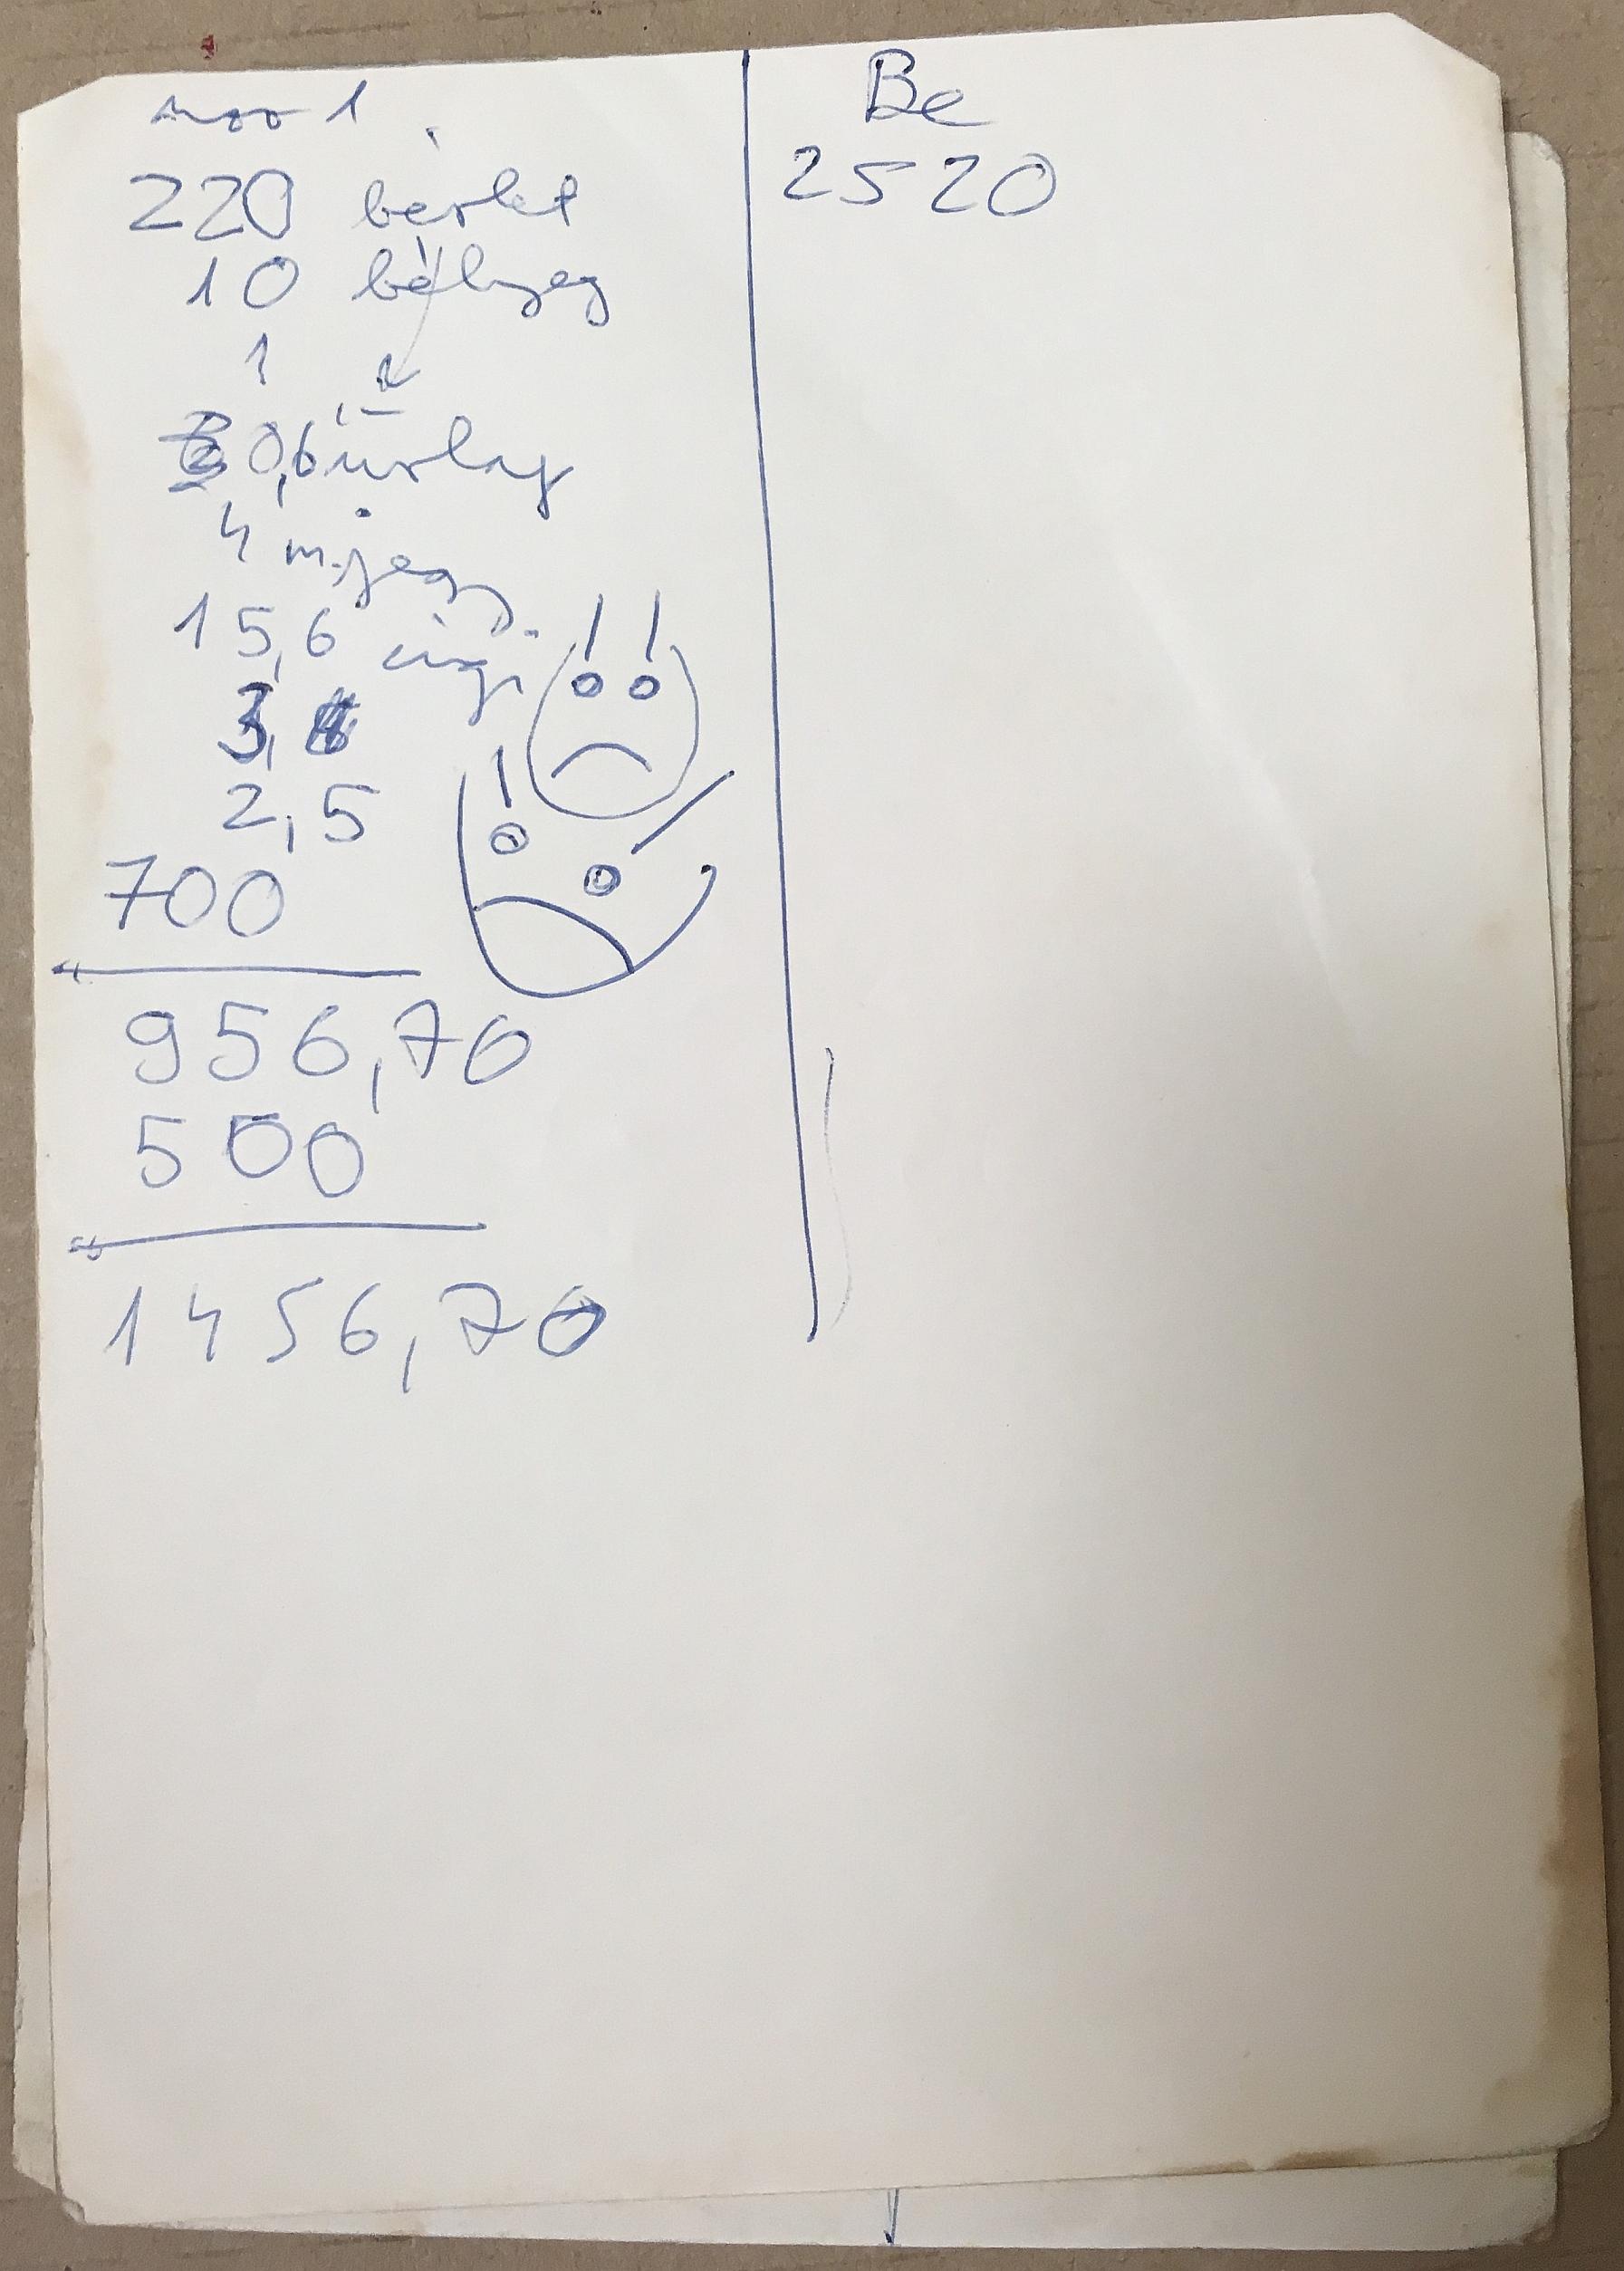 1
220 bérlet
10 bélyeg
1
0,6 űrlap
4 m.jegy
15,6 üzg.
3,
2,5
700
956,70
500
1456,70
Be
2520